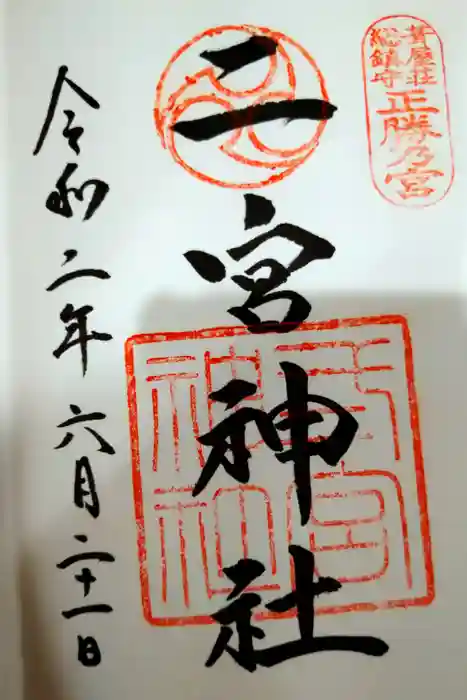 葺屋荘
総鎮守
正勝乃宮
二宮神社
令和二年六月二十一日